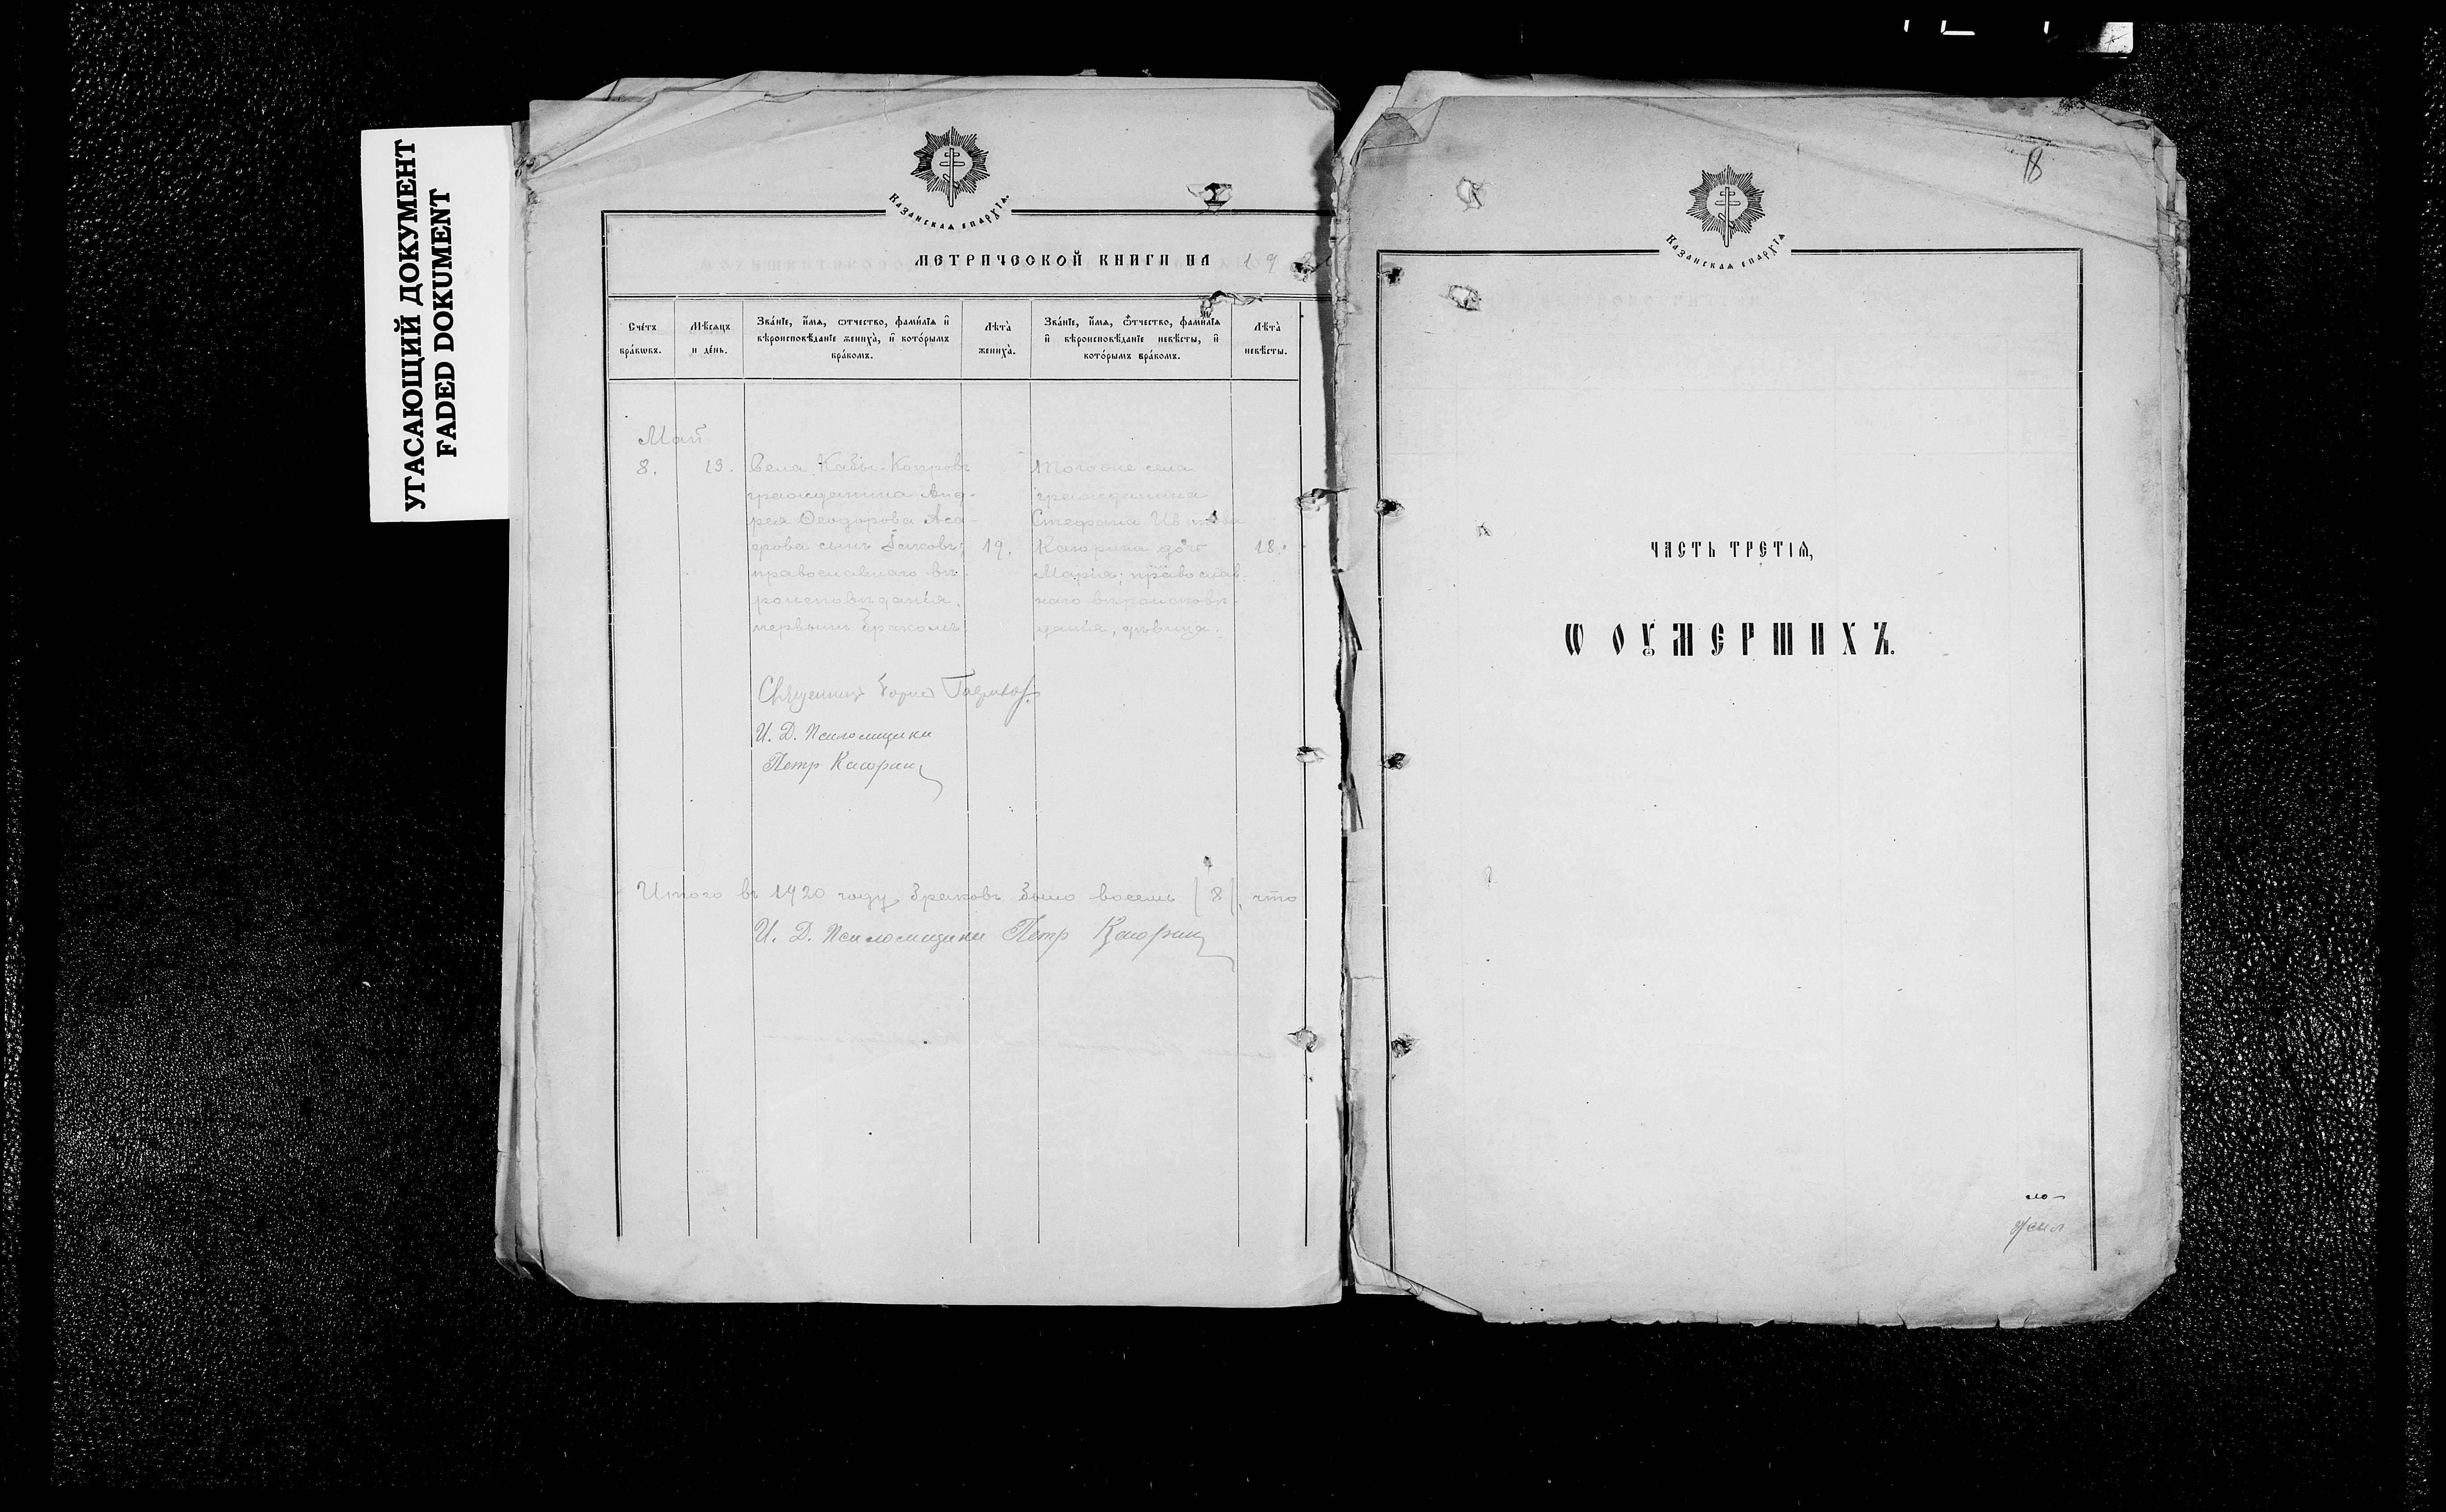 УГАСАЮЩИЙ ДОКУМЕНТ
FADED DOKUMENT
Казанская епархїѧ.
МЕТРИЧЕСКОЙ КНИГИ НА 19
Сче́тъ бра́кωвъ.
Мѣсяцъ и де́нь.
Зва́нїе, и҆́мѧ, ѻтчество, фами́лїѧ и҆ вѣроисповѣ́данїе жениха̀, и҆ кото́рымъ бра́комъ.
Лѣта̀ жениха̀.
Зва́нїе, и҆́мѧ, ѻтчество, фами́лїѧ и҆ вѣроисповѣ́данїе невѣ́сты, и҆ кото́рымъ бра́комъ.
Лѣта̀ невѣ́сты.
Май
8.
13.
Села Кабы-Копровъ
гражданина Анд-
рея Ѳеодорова Аса-
фова сынъ Іаковъ,
православнаго вѣ-
роисповѣданія,
первымъ бракомъ
19.
Того же села
гражданина
Стефана Иванова
Каюрина дочь
Марія; православ-
наго вѣроисповѣ-
данія, дѣвица.
18.
Священникъ
И. Д. Псаломщика
Петр Каюрин
Итого въ 1920 году браковъ было восемь (8), что
И. Д. Псаломщика Петр Каюрин
18
Казанская епархїѧ
ЧАСТЬ ТРЕТІѦ,
Ѡ ОУМЕРШИХЪ.